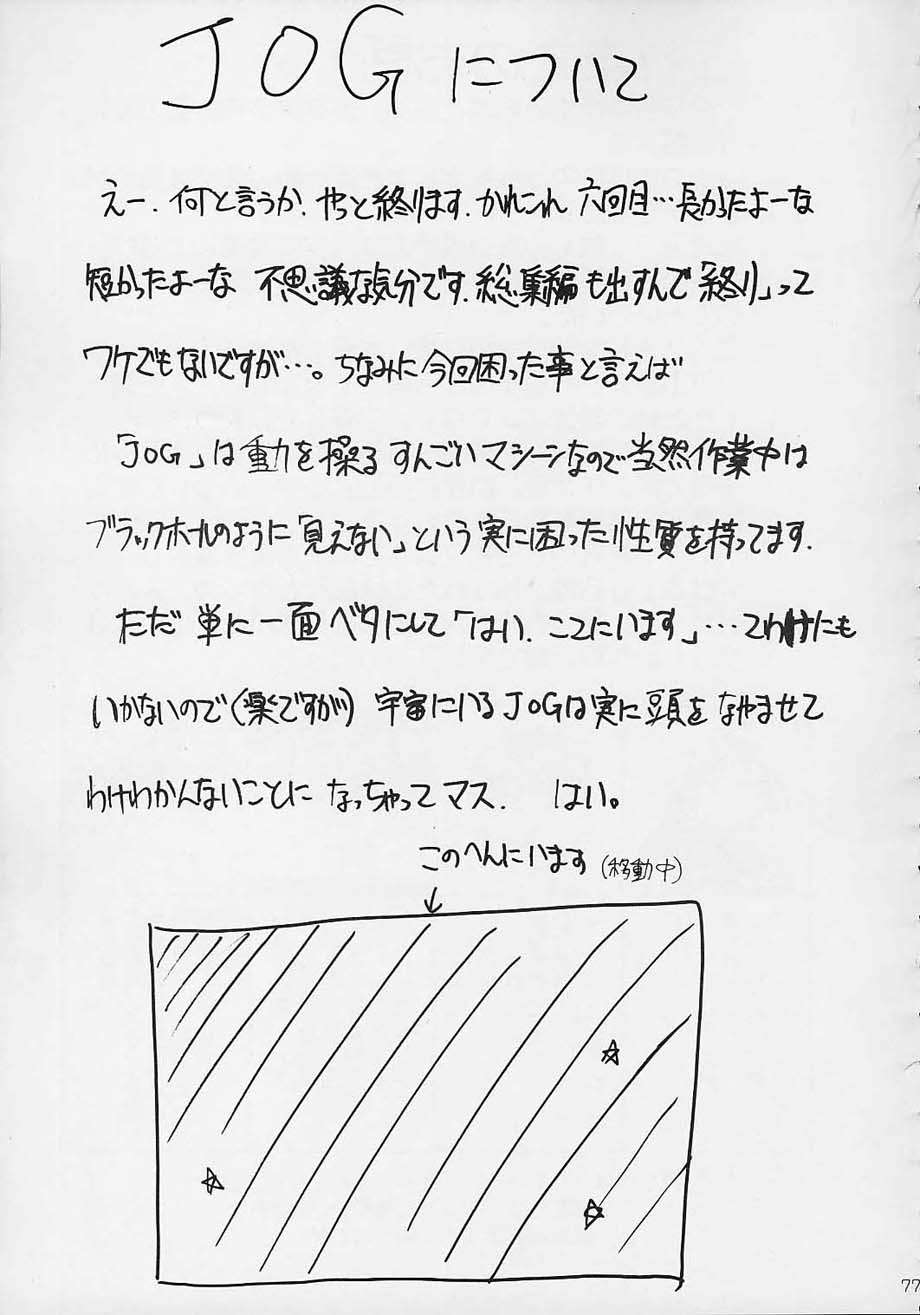 JOGについて
えー、何と言うか、やっと終ります。かれこれ 六回目…長かったよーな
短かったよーな 不思議な気分です。総集編も出すんで「終り」って
ワケでもないですが…。ちなみに今回困った事と言えば
「JOG」は重力を操るすんごいマシーンなので当然作業中は
ブラックホールのように「見えない」という実に困った性質を持ってます。
ただ単に一面ベタにして「はい、ここにいます」…てわけにも
いかないので(楽ですが) 宇宙にいるJOGは実に頭をなやませて
わけわかんないことになっちゃってマス. はい。
このへんにいます(移動中)
77